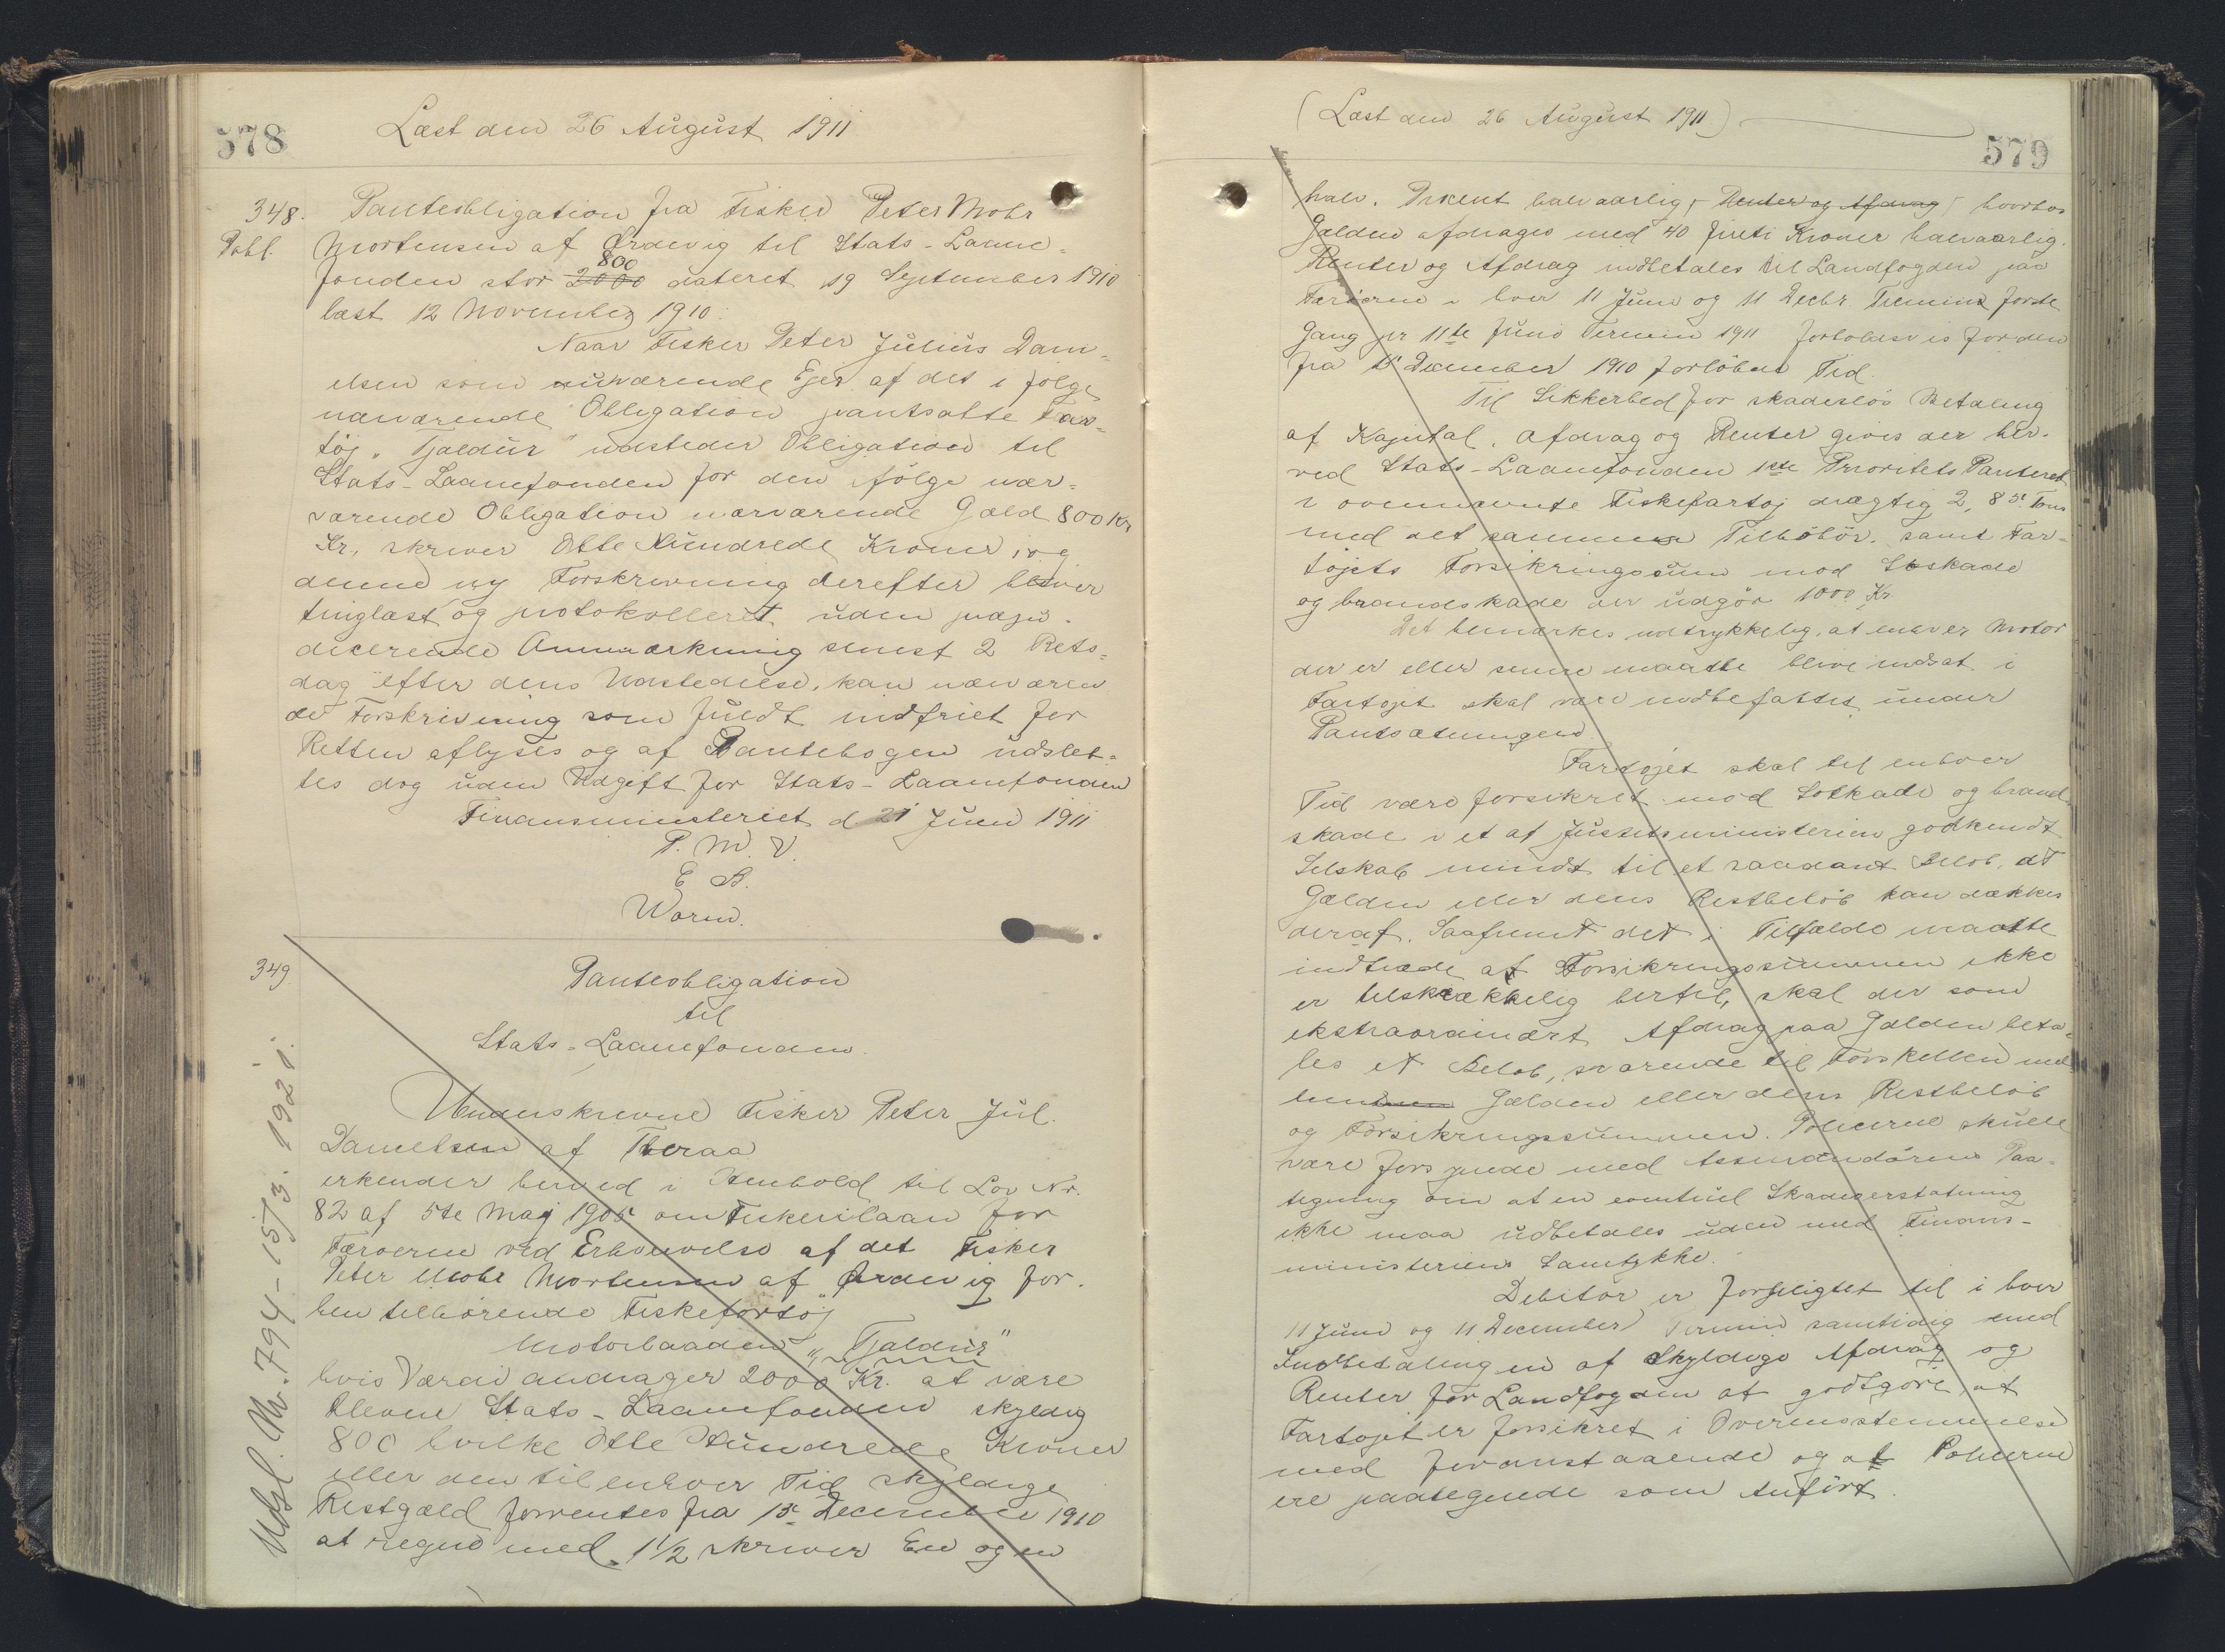 578
Læst den 26 August 1911
348. Panteobligation fra Fisker Peter Mohr
Pobl. Mortensen af Ørdevig til Stats-Laane-
800
fonden stor 2000 dateret 19 September 1910
læst 12 November 1910.
Naar Fisker Peter Julius Dani-
elsen som nuværende Ejer af det i følge
nærværende Obligation pantsatte Far-
tøj "Tjaldur" udsteder Obligation til
Stats-Laanefonden for den ifølge nær-
værende Obligation nærværende Gæld 800 Kr
Kr, skriver Otte Hundrede Kroner, og
denne ny Forskrivning derefter bliver
tinglæst og protokolleret uden præju-
dicerende Anmærkning senest 2 Rets-
dag efter dens Udstedelse, kan nærværen
de Forskrivning som fuldt indfriet for
Retten aflyses og af Pantebogen udslet-
tes dog uden Udgift for Stats-Laanefonden
Finansministeriet d 21 Juni 1911
P. M. V.
E B.
Worm.
349
Panteobligation
til
Stats-Laanefonden.
Underskrevne Fisker Peter Jul.
Danielsen af Tveraa
erkender herved i Henhold til Lov Nr.
82 af 5te Maj 1905 om Fiskerilaan for
Færøerne ved Erhvervelse af det Fisker
Peter Mohr Mortensen af Ørdevig for-
hen tilhørende Fiskefartøj
Motorbaaden "Tjaldur"
hvis Værdi andrager 2000 Kr. at være
bleven Stats-Laanefonden skyldig
800 hvilke Otte Hundrede Kroner
eller den til enhver Tid skyldige
Restgæld forrentes fra 15 December 1910
at regne med 1 1/2 skriver En og en
Udsl. Nr. 794 - 15/3. 1921.
(Læst den 26 August 1911)
579
halv. Procent halvaarlig, Renter og Afdrag hvorhos
Gælden afdrages med 40 fireti Kroner halvaarlig.
Renter og Afdrag indbetales til Landfogden paa
Færøerne i hver 11 Juni og 11 Decbr. Termin første
Gang pr 11te Juni Termin 1911 forholdsvis for den
fra 15 December 1910 forløbne Tid.
Til Sikkerhed for skadesløs Betaling
af Kapital, Afdrag og Renter gives der her-
ved Stats-Laanefonden 1ste Prioritets Panteret
i ovennævnte Fiskefartøj drægtig 2,85 Tons
med det sammes Tilbehör, samt Far-
tøjets Forsikringssum mod Søskade
og brandskade der udgör 1000 Kr
Det bemærkes udtrykkelig, at enhver Motor
der er eller senere maatte blive indsat i
Fartøjet skal være indbefattet under
Pantsætningen.
Fartøjet skal til enhver
Tid være forsikret mod Søskade og brand
skade i et af Justitsministeriet godkendt
Selskab mindst til et saadant Beløb, at
Gælden eller dens Restbeløb kan dækkes
deraf. Saafremt det i Tilfælde maatte
indtræde at Forsikringssummen ikke
er tilstrækkelig hertil, skal der som
ekstraordinært Afdrag paa Gælden beta-
les et Beløb, svarende til Forskellen mel
lem Gælden eller dens Restbeløb
og Forsikringssummen. Policerne skulle
være forsynede med Assurandörens Paa-
tegning om at en eventuel Skadeserstatning
ikke maa udbetales uden med Finans-
ministeriets Samtykke.
Debitor er forpligtet til i hver
11 Juni og 11 December Termin samtidig med
Indbetalingen af skyldige Afdrag og
Renter for Landfogden at godtgøre at
Fartøjet er forsikret i Overensstemmelse
med foranstaaende og at Policerne
ere paategnede som Anført.